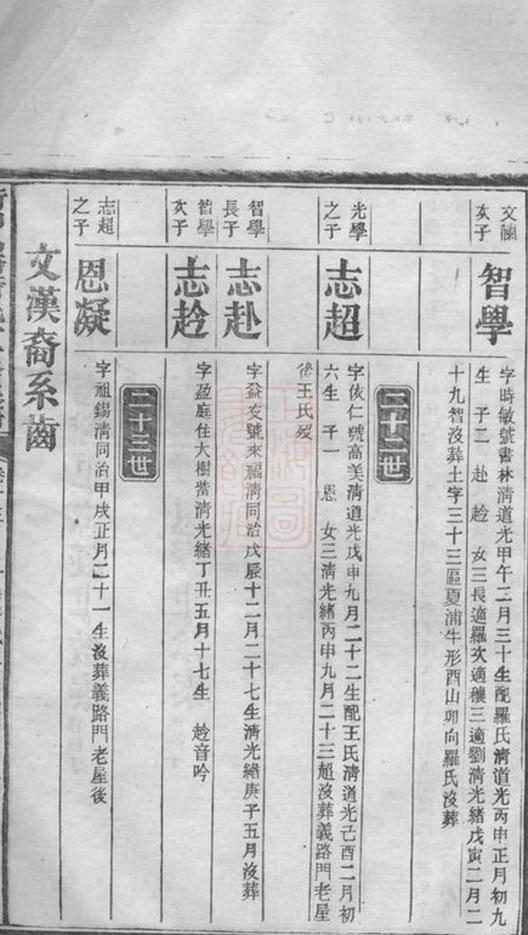 文
次子
智學
字時敏號書林清道光甲午二月三十生配羅氏清道光丙申正月初九
生 子二 赴 趻 女三長適羅次適穰三適劉清光緒戊寅二月二
十九智沒葬土字三十三區夏浦牛形酉山卯向羅氏沒葬
二十二世
光學之子
志超
字依仁號高美清道光戊申九月二十二生配王氏清道光己酉二月初
六生 子一 恩 女三清光緒丙申九月二十三超沒葬義路門老屋
後王氏歿
智學長子
志赴
字益友號來福清同治戊辰十二月二十七生清光緒庚子五月沒葬
智學次子
志趻
字盈庭住大樹
清光緒丁丑五月十七生 趻音吟
二十三世
志超之子
恩凝
字祖錫清同治甲戌正月二十一生沒葬義路門老屋後
文漢裔系齒